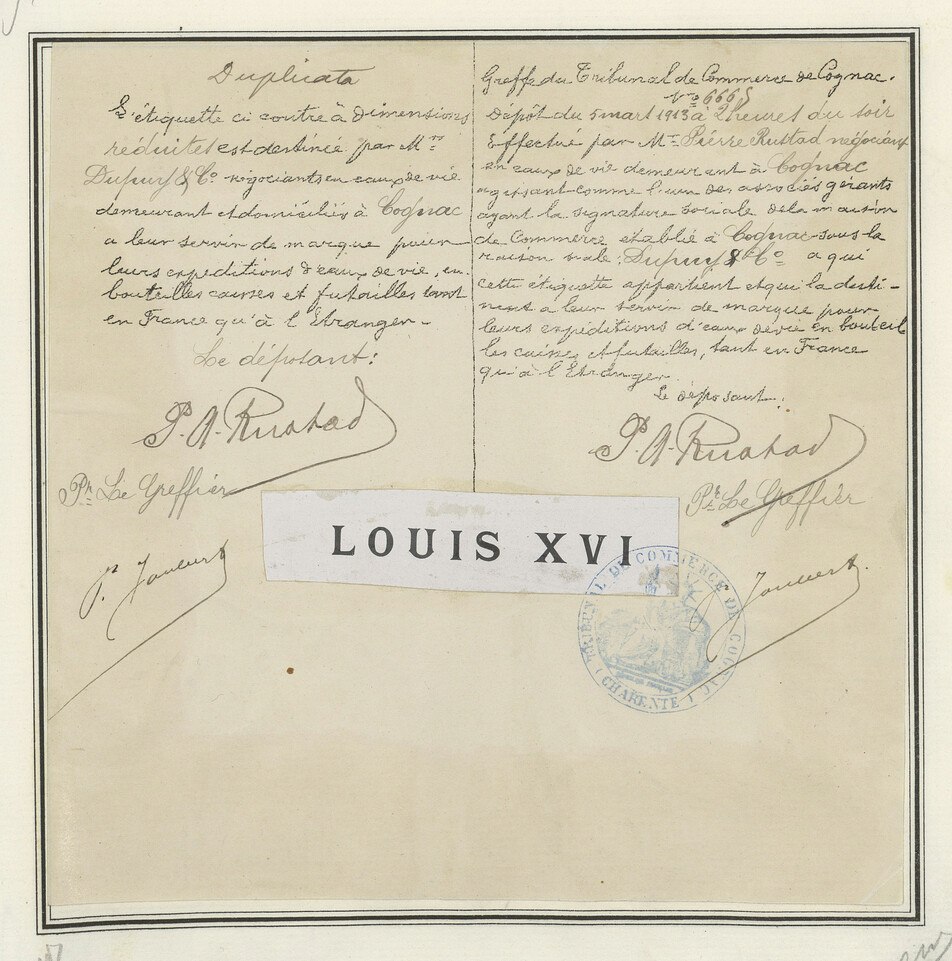 Duplicata
L'étiquette ci contre à dimensions
réduites est destinée par Mrs
Dupuy & Co négociants en eaux de vie
demeurant et domiciliés à Cognac
a leur servir de marque pour
leurs expeditions d'eaux de vie, en
bouteilles caisses et futailles tant
en France qu'à l'Etranger.
Le déposant:
P. A. Rustad
Pr Le Greffier
Greffe du Tribunal de Commerce de Cognac.
No 6668
Dépôt du 5 mart 1913 à 2 heures du soir
Effectué par Mr Pierre Rustad négociant
en eaux de vie demeurant à Cognac
agissant comme l'un des associés gérants
ayant la signature sociale de la maison
de Commerce établie à Cognac sous la
raison sociale: Dupuy & Co a qui
cette étiquette appartient et qui la desti-
nent a leur servir de marque pour
leurs expeditions d'eaux de vie en bouteil
les caisses et futailles, tant en France
qu'à l'Etranger
Le déposant:
P. A. Rustad
Pr Le Greffier
LOUIS XVI
TRIBUNAL DU COMMERCE DE COGNAC
(CHARENTE)